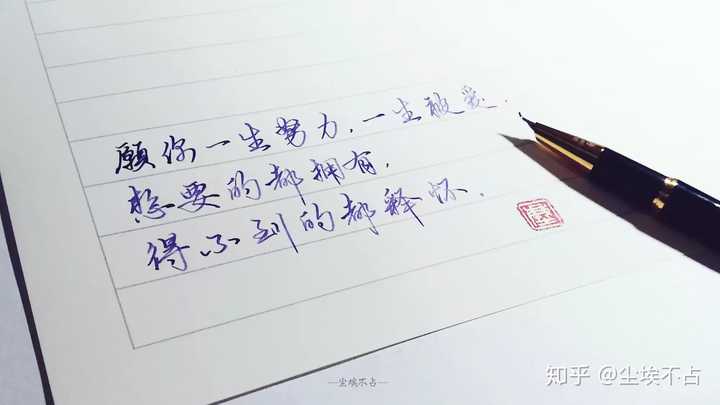 願你一生努力，一生被爱.
想要的都拥有，
得不到的都释怀.
—尘埃不占—
知乎 @尘埃不占